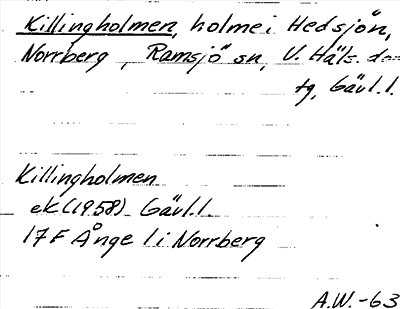 Killingholmen, holme i Hedsjön,
Norrberg, Ramsjö sn, V. Häls. doms
tg, Gävl.l.
Killingholmen
ek (1958) Gävl.l.
17F Ånge l i Norrberg
A.W. -63